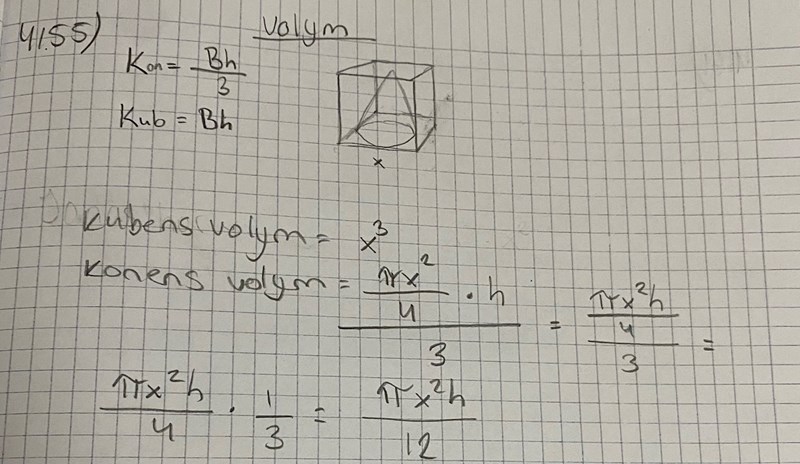 4155) Volym
Kon = Bh/3
Kub = Bh
x
Kubens volym = x³
Konens volym = (πx²/4 · h)/3 = (πx²h/4)/3 =
πx²h/4 · 1/3 = πx²h/12